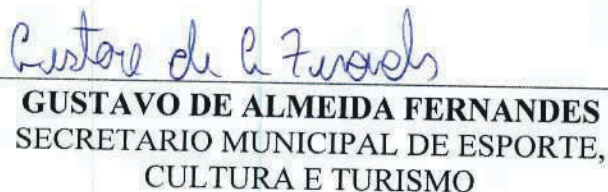 Gustavo de A Fernandes
GUSTAVO DE ALMEIDA FERNANDES
SECRETARIO MUNICIPAL DE ESPORTE,
CULTURA E TURISMO